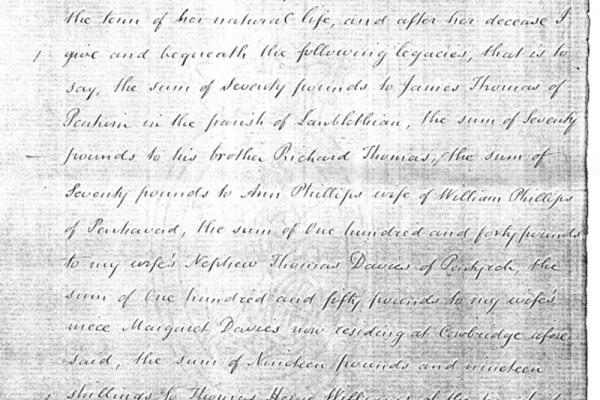 the term of her natural life, and after her decease I
give and bequeath the following legacies, that is to
say, the sum of Seventy pounds to James Thomas of
in the parish of Lanblethian, the sum of Seventy
pounds to his brother Richard Thomas, the sum of
Seventy pounds to Ann Phillips wife of William Phillips
of Penhavad, the sum of One hundred and forty pounds
to my wife's Nephew Thomas Davies of Pentyrch, the
sum of One hundred and fifty pounds to my wife's
niece Margaret Davies now residing at Cowbridge afore
said, the sum of Nineteen pounds and nineteen
shillings to Thomas Williams of the